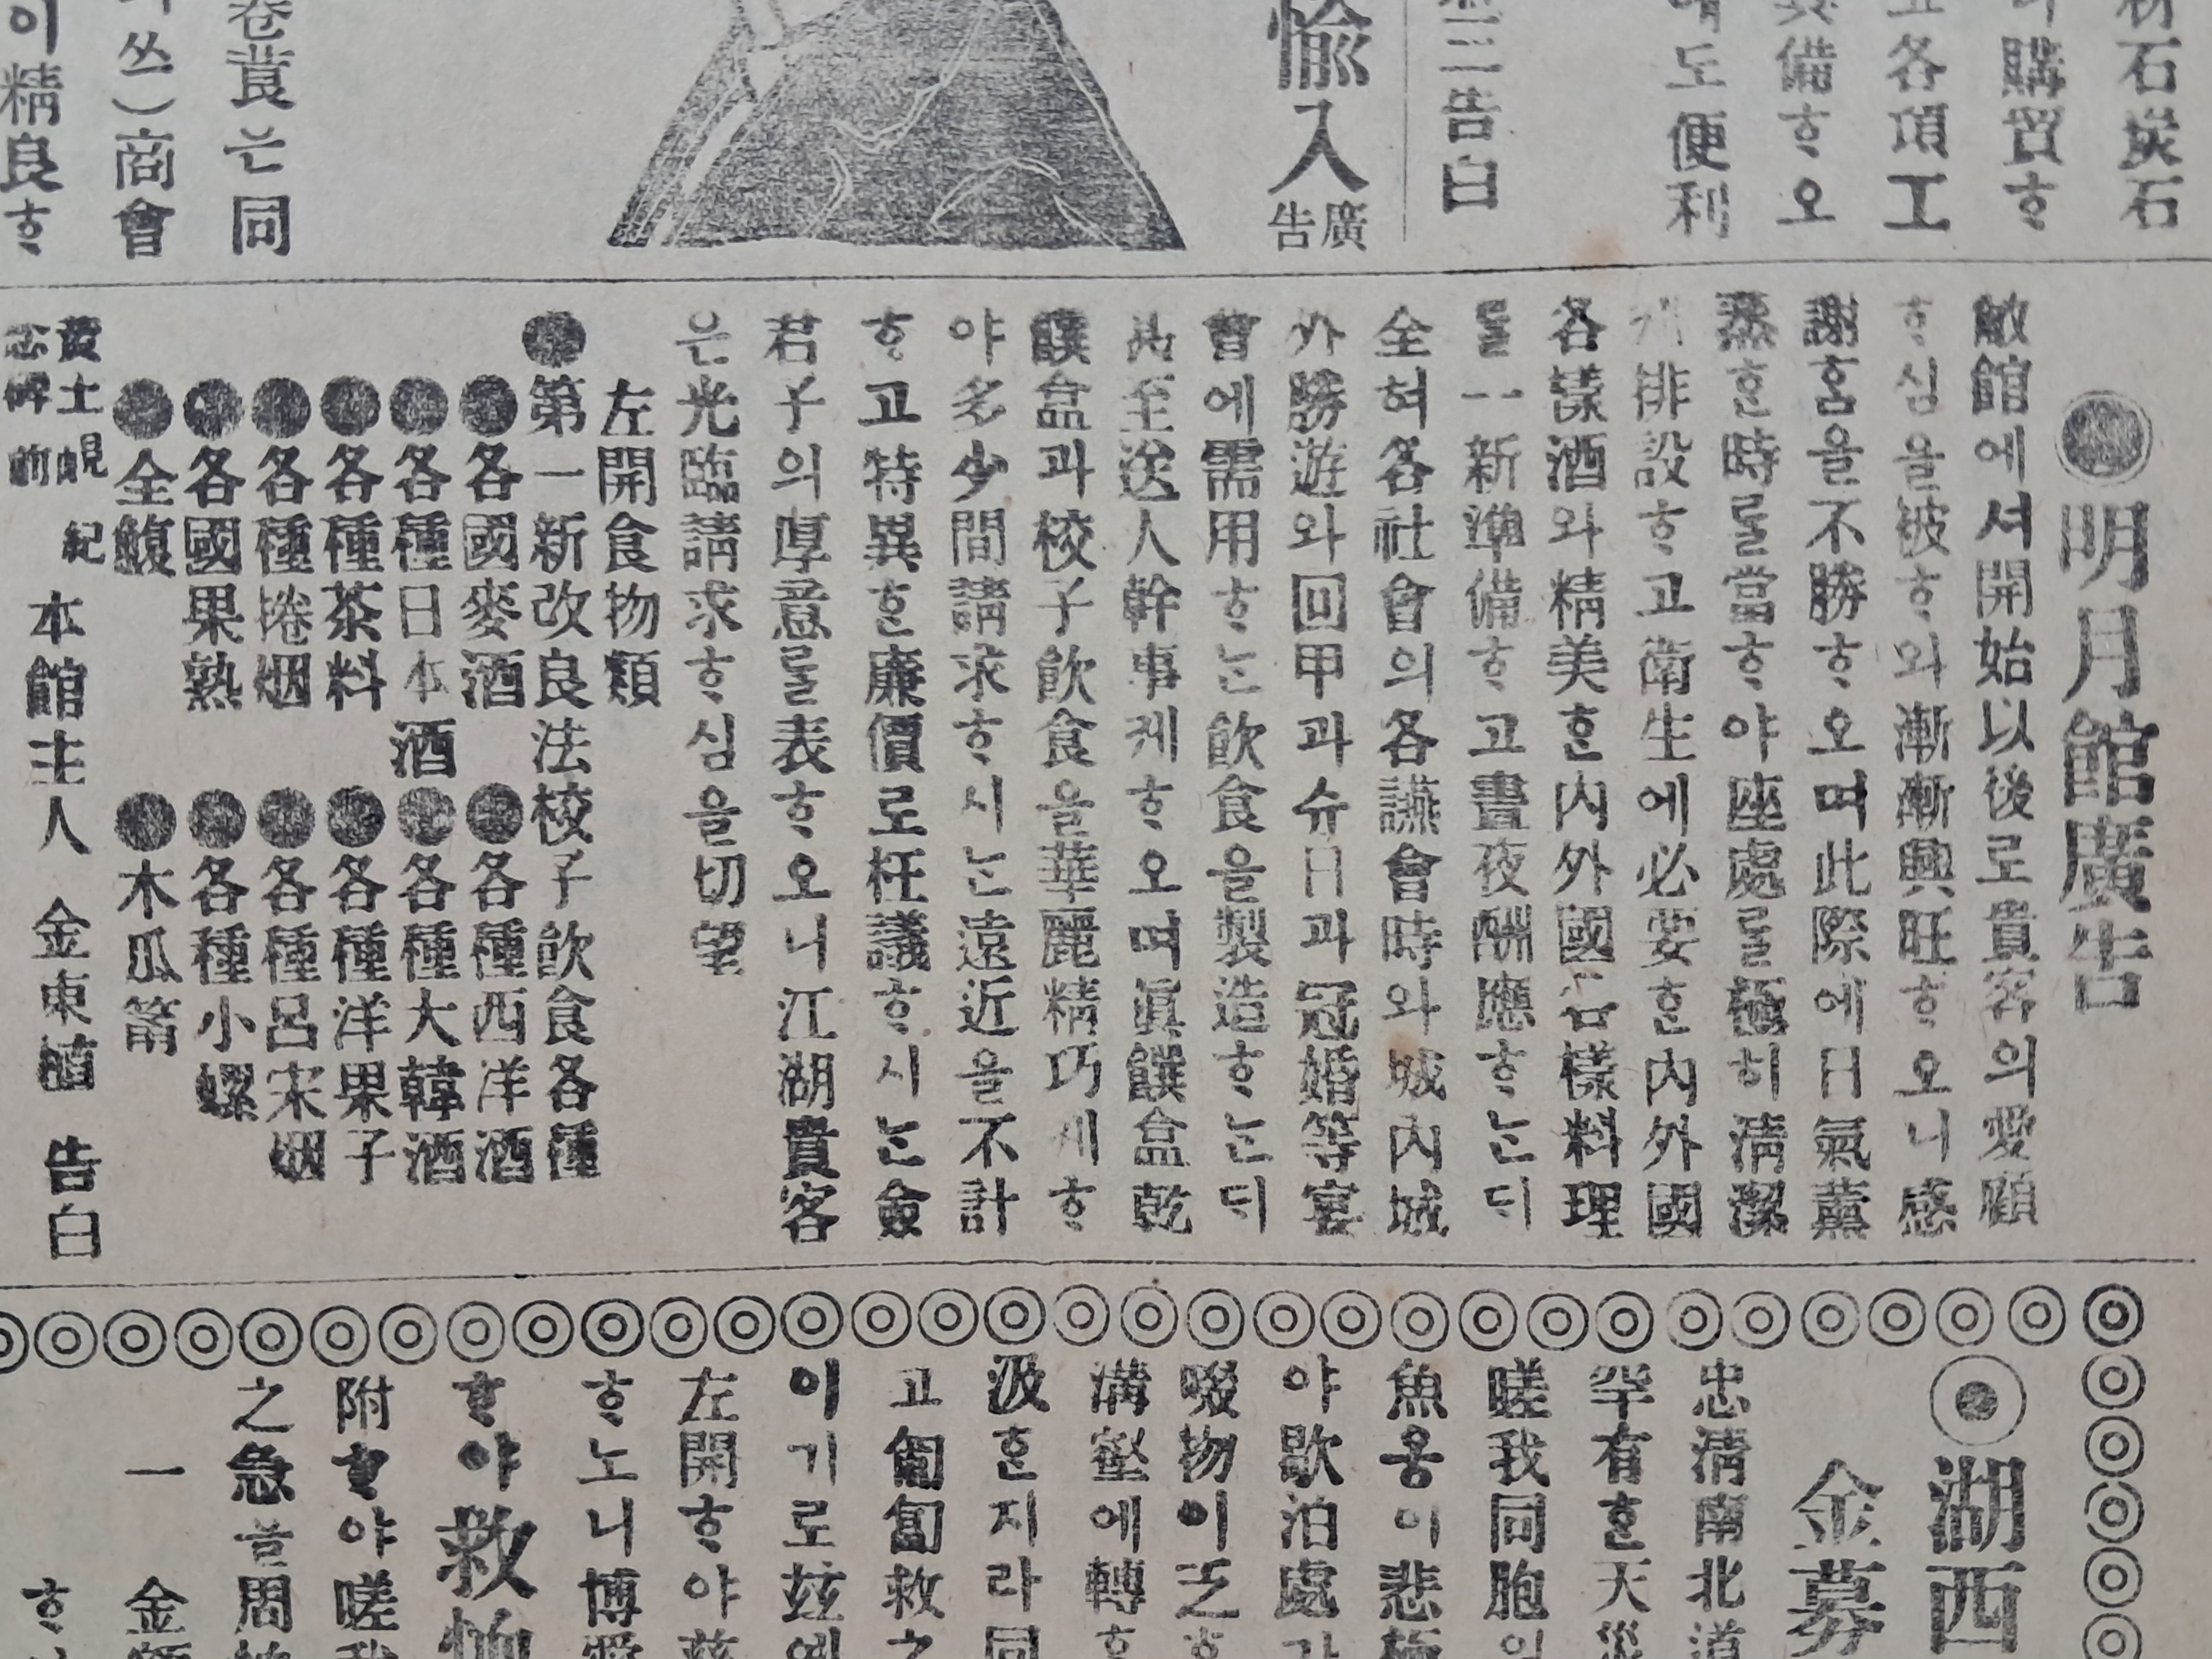 材石炭石
購買ᄒᆞ
各項工
具備ᄒᆞ오
도便利
告白
愉入
廣告
卷莨ᄂᆞᆫ同
쓰)商會
이精良ᄒᆞ
明月館廣告
敝館에셔開始以後로貴客의愛顧
ᄒᆞ심을被ᄒᆞ와漸漸興旺ᄒᆞ오니感
謝홈을不勝ᄒᆞ오며此際에日氣薰
蒸ᄒᆞᆫ時ᄅᆞᆯ當ᄒᆞ야座處ᄅᆞᆯ極히淸潔
케排設ᄒᆞ고衛生에必要ᄒᆞᆫ內外國
各樣酒와精美ᄒᆞᆫ內外國各樣料理
ᄅᆞᆯ一新準備ᄒᆞ고晝夜酬應ᄒᆞᄂᆞᆫᄃᆡ
全혀各社會의各讌會時와城內城
外勝遊와回甲과슈日과冠婚等宴
會에需用ᄒᆞᄂᆞᆫ飮食을製造ᄒᆞᄂᆞᆫᄃᆡ
甚至送人幹事케ᄒᆞ오며眞饌盒乾
饌盒과校子飮食을華麗精巧케ᄒᆞ
야多少間請求ᄒᆞ시ᄂᆞᆫ遠近을不計
ᄒᆞ고特異ᄒᆞᆫ廉價로枉議ᄒᆞ시ᄂᆞᆫ僉
君子의厚意ᄅᆞᆯ表ᄒᆞ오니江湖貴客
은光臨請求ᄒᆞ심을切望
左開食物類
第一新改良法校子飮食各種
各國麥酒 各種西洋酒
各種日本酒 各種大韓酒
各種茶料 各種洋果子
各種捲烟 各種呂宋烟
各國果熟 各種小螺
全鰒 木瓜箭
黃土峴 紀
念碑前
本館主人 金東植 告白
湖西
金募
忠淸南北道
罕有ᄒᆞᆫ天災
嗟我同胞의
魚옹이悲極
야歇泊處가
啜物이乏ᄒᆞ
溝壑에轉ᄒᆞ
汲ᄒᆞᆫ지라同
고匍匐救之
이기로玆에
左開ᄒᆞ야玆
ᄒᆞ노니博愛
ᄒᆞ야救恤
附ᄒᆞ야嗟我
之急을周
一 金額
ᄒᆞ